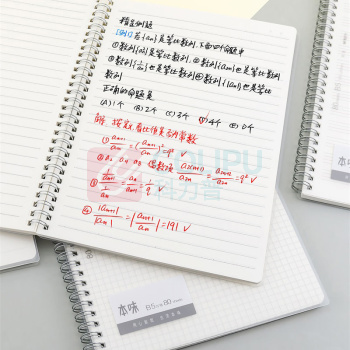 精选例题
[例1] 若{an}是等比数列,下面四个命题中
①数列{an²}是等比数列,②数列{a2n}也是等比数列
③数列{1/an}也是等比数列④数列{|an|}也是等比
数列
正确的命题是
(A)1个 (B)2个 (C)3个 (D)4个 (E)0个
解:按定义看比值是否为常数
① a²n+1/a²n=(an+1/an)²=q²
② a2 a4 a6 偶数项 a2(n+1)/a2n=a2n+2/a2n=q² √
③ 1/an+1/1/an=an/an+1=1/q √
④ |an+1|/|an|=|an+1/an|=|q| √
本味
B5 80